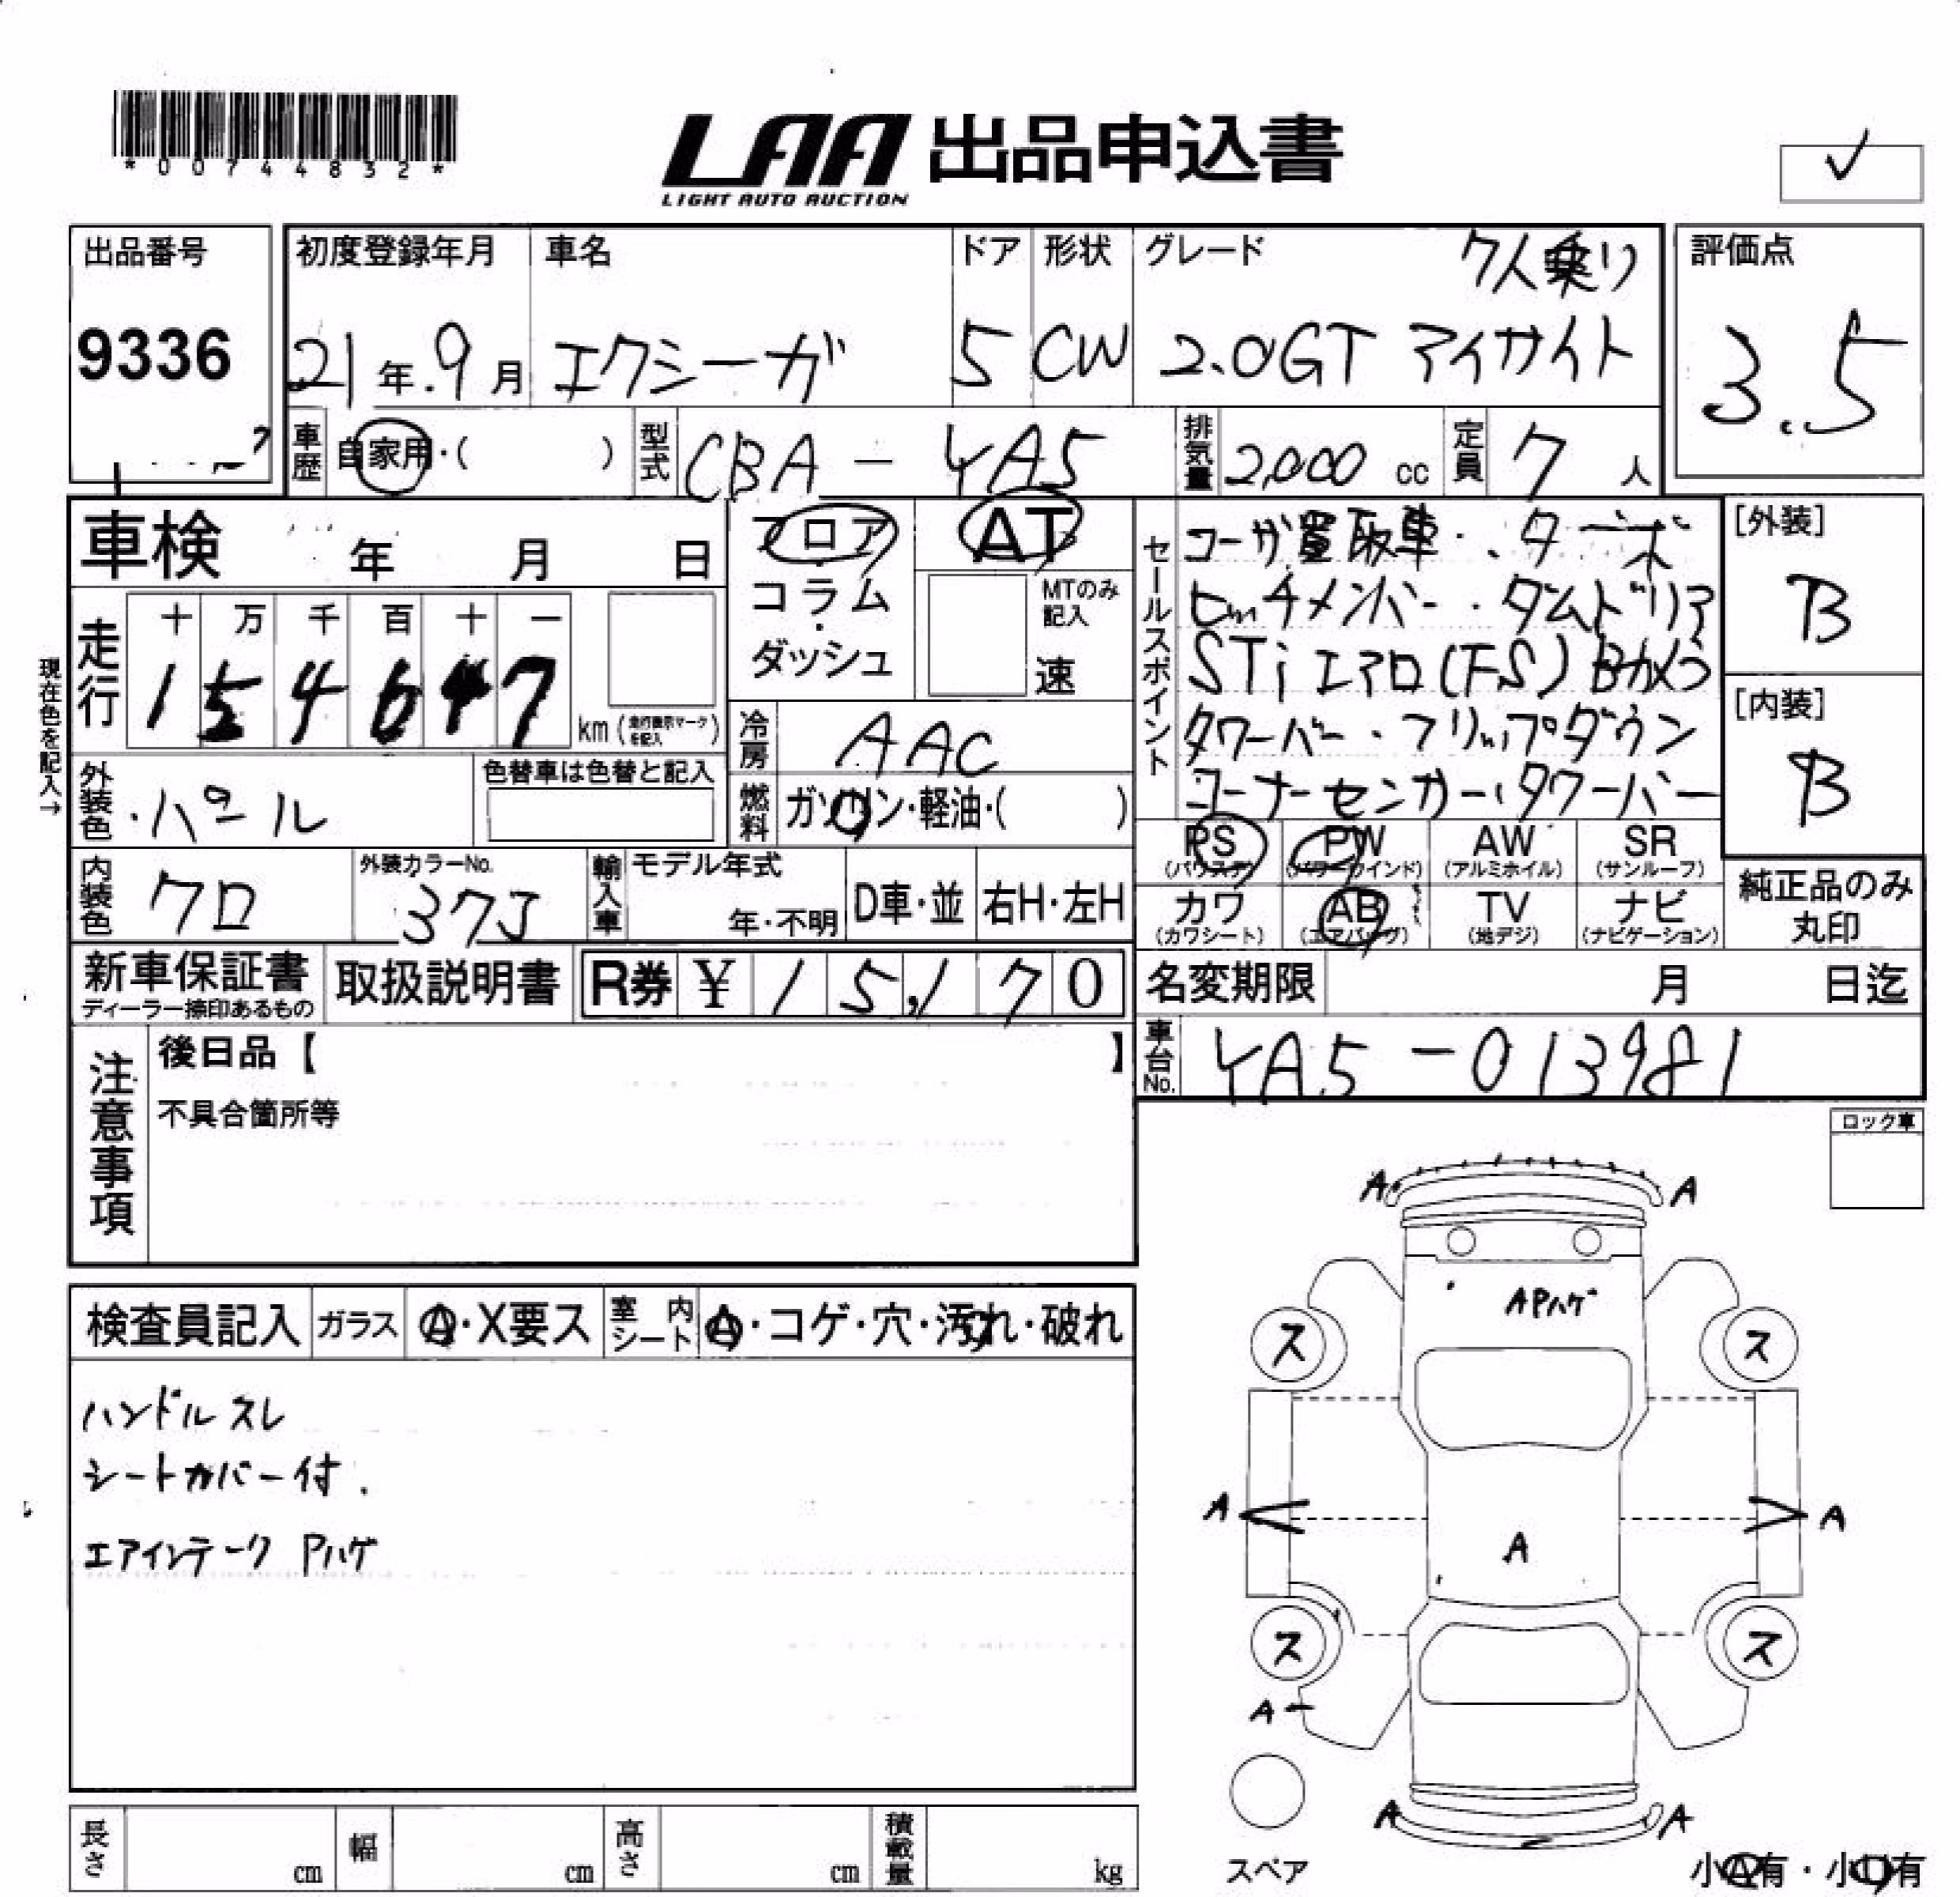 *00744832*
LAA 出品申込書
LIGHT AUTO AUCTION
✓
出品番号
9336
初度登録年月
21年.9月
車名
エクシーガ
ドア
5
形状
CW
グレード
7人乗り
2.0GT アイサイト
評価点
3.5
車歴
自家用・( )
型式
CBA-YA5
排気量
2,000 cc
定員
7人
車検 年 月 日
フロア
・
コラム
・
ダッシュ
AT
MTのみ
記入
速
セールスポイント
コーが買取車・、ターボ
ヒッチメンバー・タムドリア
STi エアロ(FS)Bカメラ
タワーバー・フリップダウン
コーナーセンサー・タワーバー
[外装]
B
[内装]
B
現在色を記入→
走行
十 万 千 百 十 一
1 5 4 6 4 7
km(走行表示マークを記入)
冷房
AAC
外装色
パール
色替車は色替と記入
燃料
ガソリン・軽油・( )
PS
(パワステ)
PW
(パワーウインド)
AW
(アルミホイル)
SR
(サンルーフ)
内装色
クロ
外装カラーNo.
37J
輸入車
モデル年式
年・不明
D車・並
右H・左H
カワ
(カワシート)
AB
(エアバッグ)
TV
(地デジ)
ナビ
(ナビゲーション)
純正品のみ
丸印
新車保証書
ディーラー捺印あるもの
取扱説明書
R券 ¥ 15,170
名変期限 月 日迄
車台No.
YA5-013981
注意事項
後日品【 】
不具合箇所等
ロック車
検査員記入
ガラス
A・X要ス
室内シート
A・コゲ・穴・汚れ・破れ
ハンドルスレ
シートカバー付.
エアインテーク Pハゲ
A A
APハゲ
ス ス
A A
A
ス ス
A
A A
スペア
小A有・小U有
長さ cm
幅 cm
高さ cm
積載量 kg